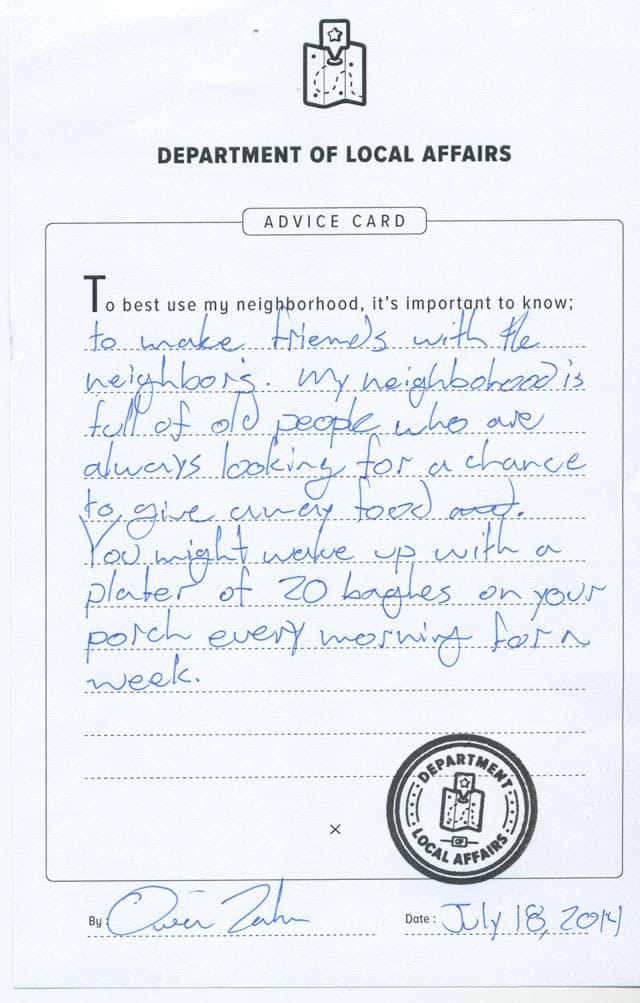 DEPARTMENT OF LOCAL AFFAIRS
ADVICE CARD
To best use my neighborhood, it's important to know;
to make friends with the
neighbors. My neighbohood is
full of old people who are
always looking for a chance
to give away food and.
You might wake up with a
plater of 20 baghes on your
porch every morning for a
week.
×
DEPARTMENT
OF
LOCAL AFFAIRS
By: Owen
Date: July 18, 2014